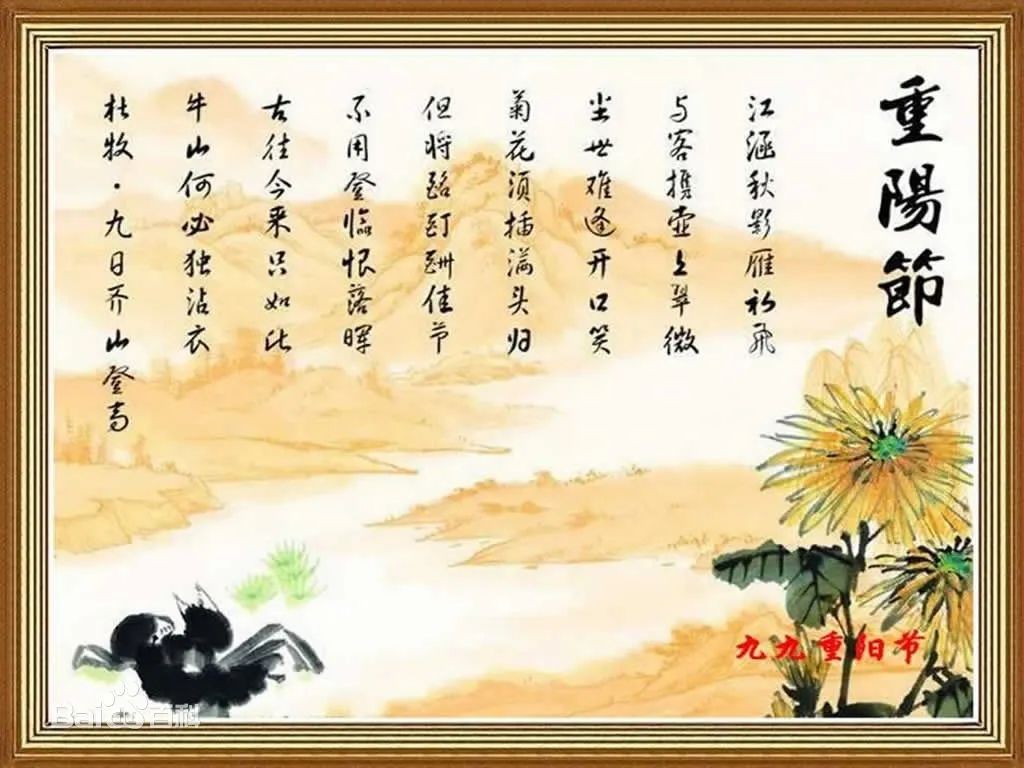 重陽節
江涵秋影雁初飛
与客携壶上翠微
尘世难逢开口笑
菊花须插满头归
但将酩酊酬佳节
不用登临恨落晖
古往今来只如此
牛山何必独沾衣
杜牧·九日齐山登高
九九重阳节
Baidu百科